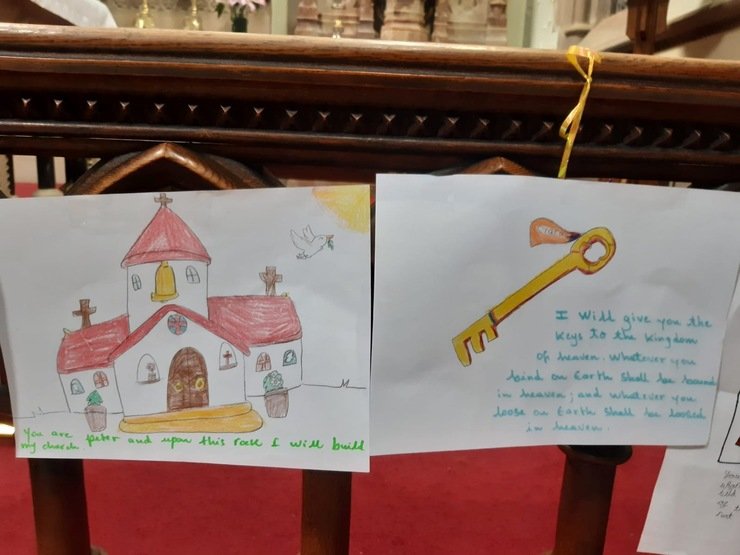 You are Peter and upon this rock I will build
my church
I will give you the
Keys to the Kingdom
of heaven. Whatever you
bind on Earth shall be bound
in heaven; and whatever you
loose on Earth shall be loosed
in heaven.